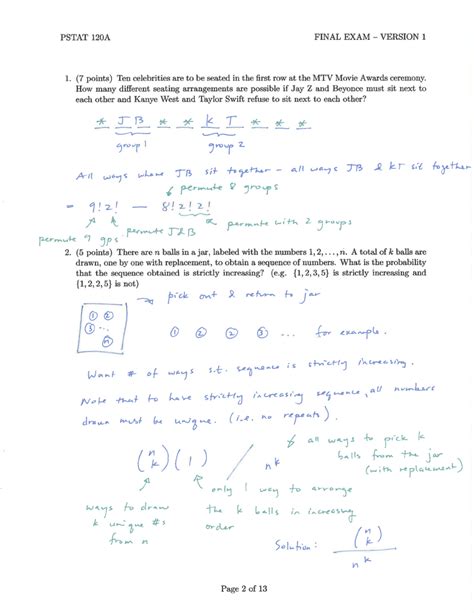 PSTAT 120A FINAL EXAM – VERSION 1
1. (7 points) Ten celebrities are to be seated in the first row at the MTV Movie Awards ceremony.
How many different seating arrangements are possible if Jay Z and Beyonce must sit next to
each other and Kanye West and Taylor Swift refuse to sit next to each other?
* J B * * * K T * * *
group 1 group 2
All ways where JB sit together - all ways JB & KT sit together
permute 8 groups
= 9!2! — 8!2!2!
permute 9 gps permute J&B permute with 2 groups
2. (5 points) There are n balls in a jar, labeled with the numbers 1, 2, . . . , n. A total of k balls are
drawn, one by one with replacement, to obtain a sequence of numbers. What is the probability
that the sequence obtained is strictly increasing? (e.g. {1, 2, 3, 5} is strictly increasing and
{1, 2, 2, 5} is not)
pick out & return to jar
① ②
③ ...
n
① ② ② ③ ... for example.
Want # of ways s.t. sequence is strictly increasing.
Note that to have strictly increasing sequence, all numbers
drawn must be unique. (i.e. no repeats).
all ways to pick k
balls from the jar
(with replacement)
(n k)(1) n^k
only 1 way to arrange
ways to draw the k balls in increasing
k unique #s order
from n
Solution: (n k) / n^k
Page 2 of 13